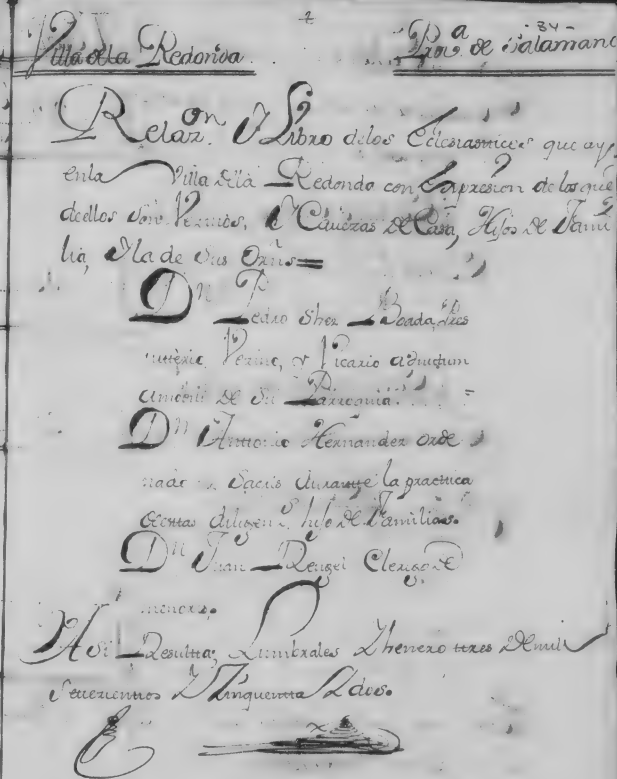 2 -34-
Villa de la Redonda Prov.ª de Salamanc
Relaz.on I Libro delos Eclesiasticos que ay
enla Villa dela Redonda con Expresion de los que
de ellos son Vecinos, I Cauezas de Casa, Hijos de Fami
lia, I la de sus Orñs=
Dn Pedro Shez Boada, Pres
uitero Vezino, y Vicario adnutum
amobil de su Parroquia.
Dn Antonio Hernandez orde
nado Sacris durante la practica
de ciertas diligens, hijo de Familias.
Dn Juan Renxel Clerigo de
menores.
Asi Resulta; Lumbrales I henero tres de mil
Setezientos I Zinquenta I dos.